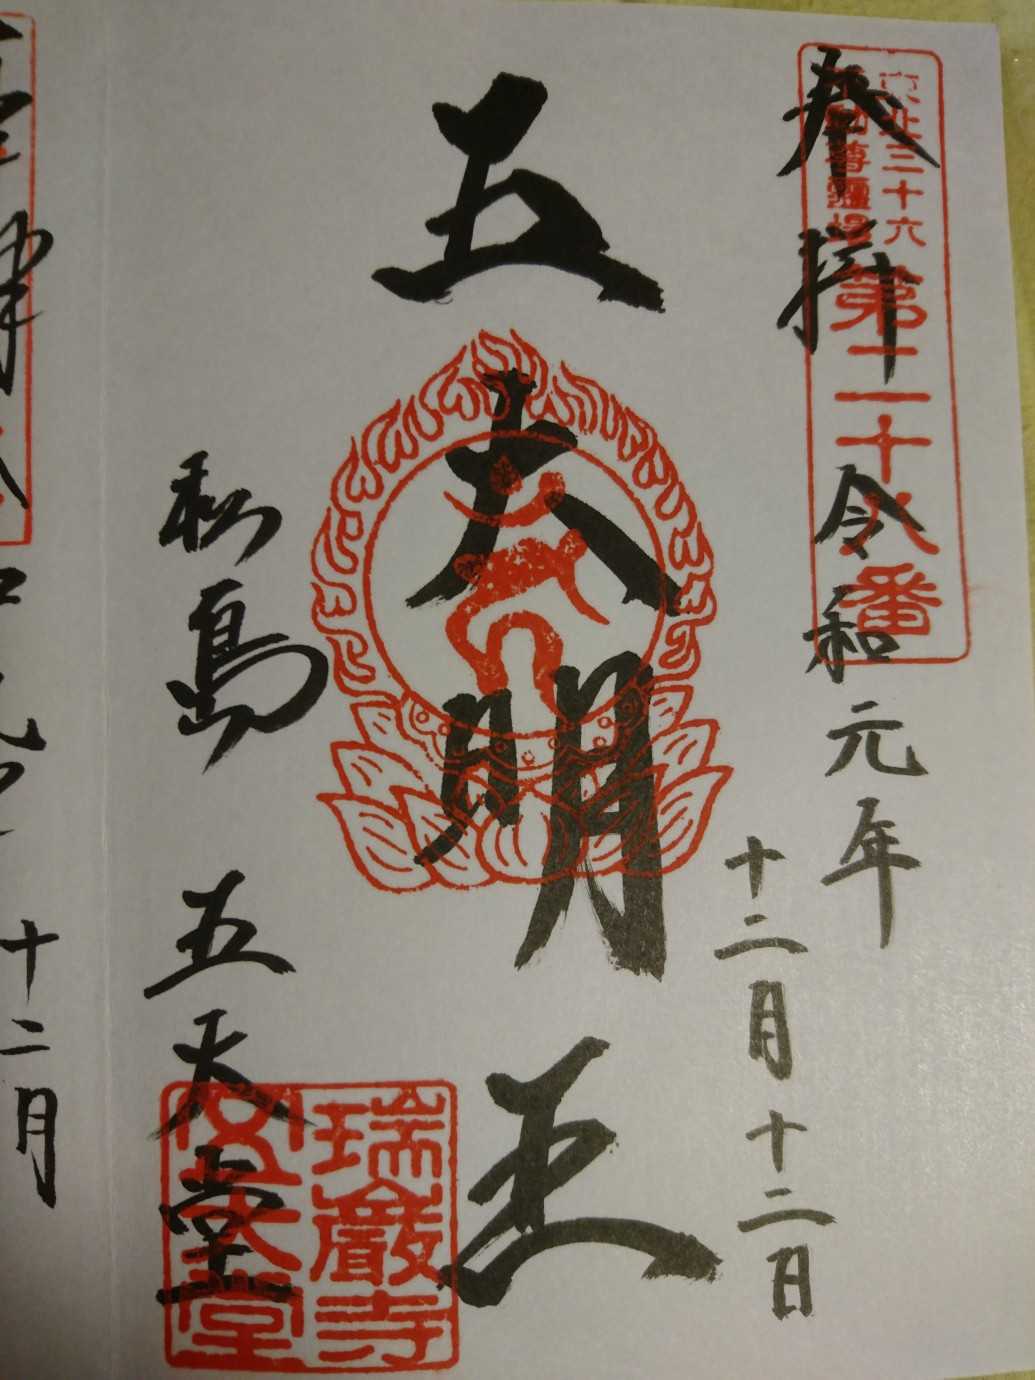 奉拝
令和元年
十二月十二日
東北三十六
不動尊霊場
第二十八番
五大明王
松島
五大堂
瑞巌寺
五大堂
十二月